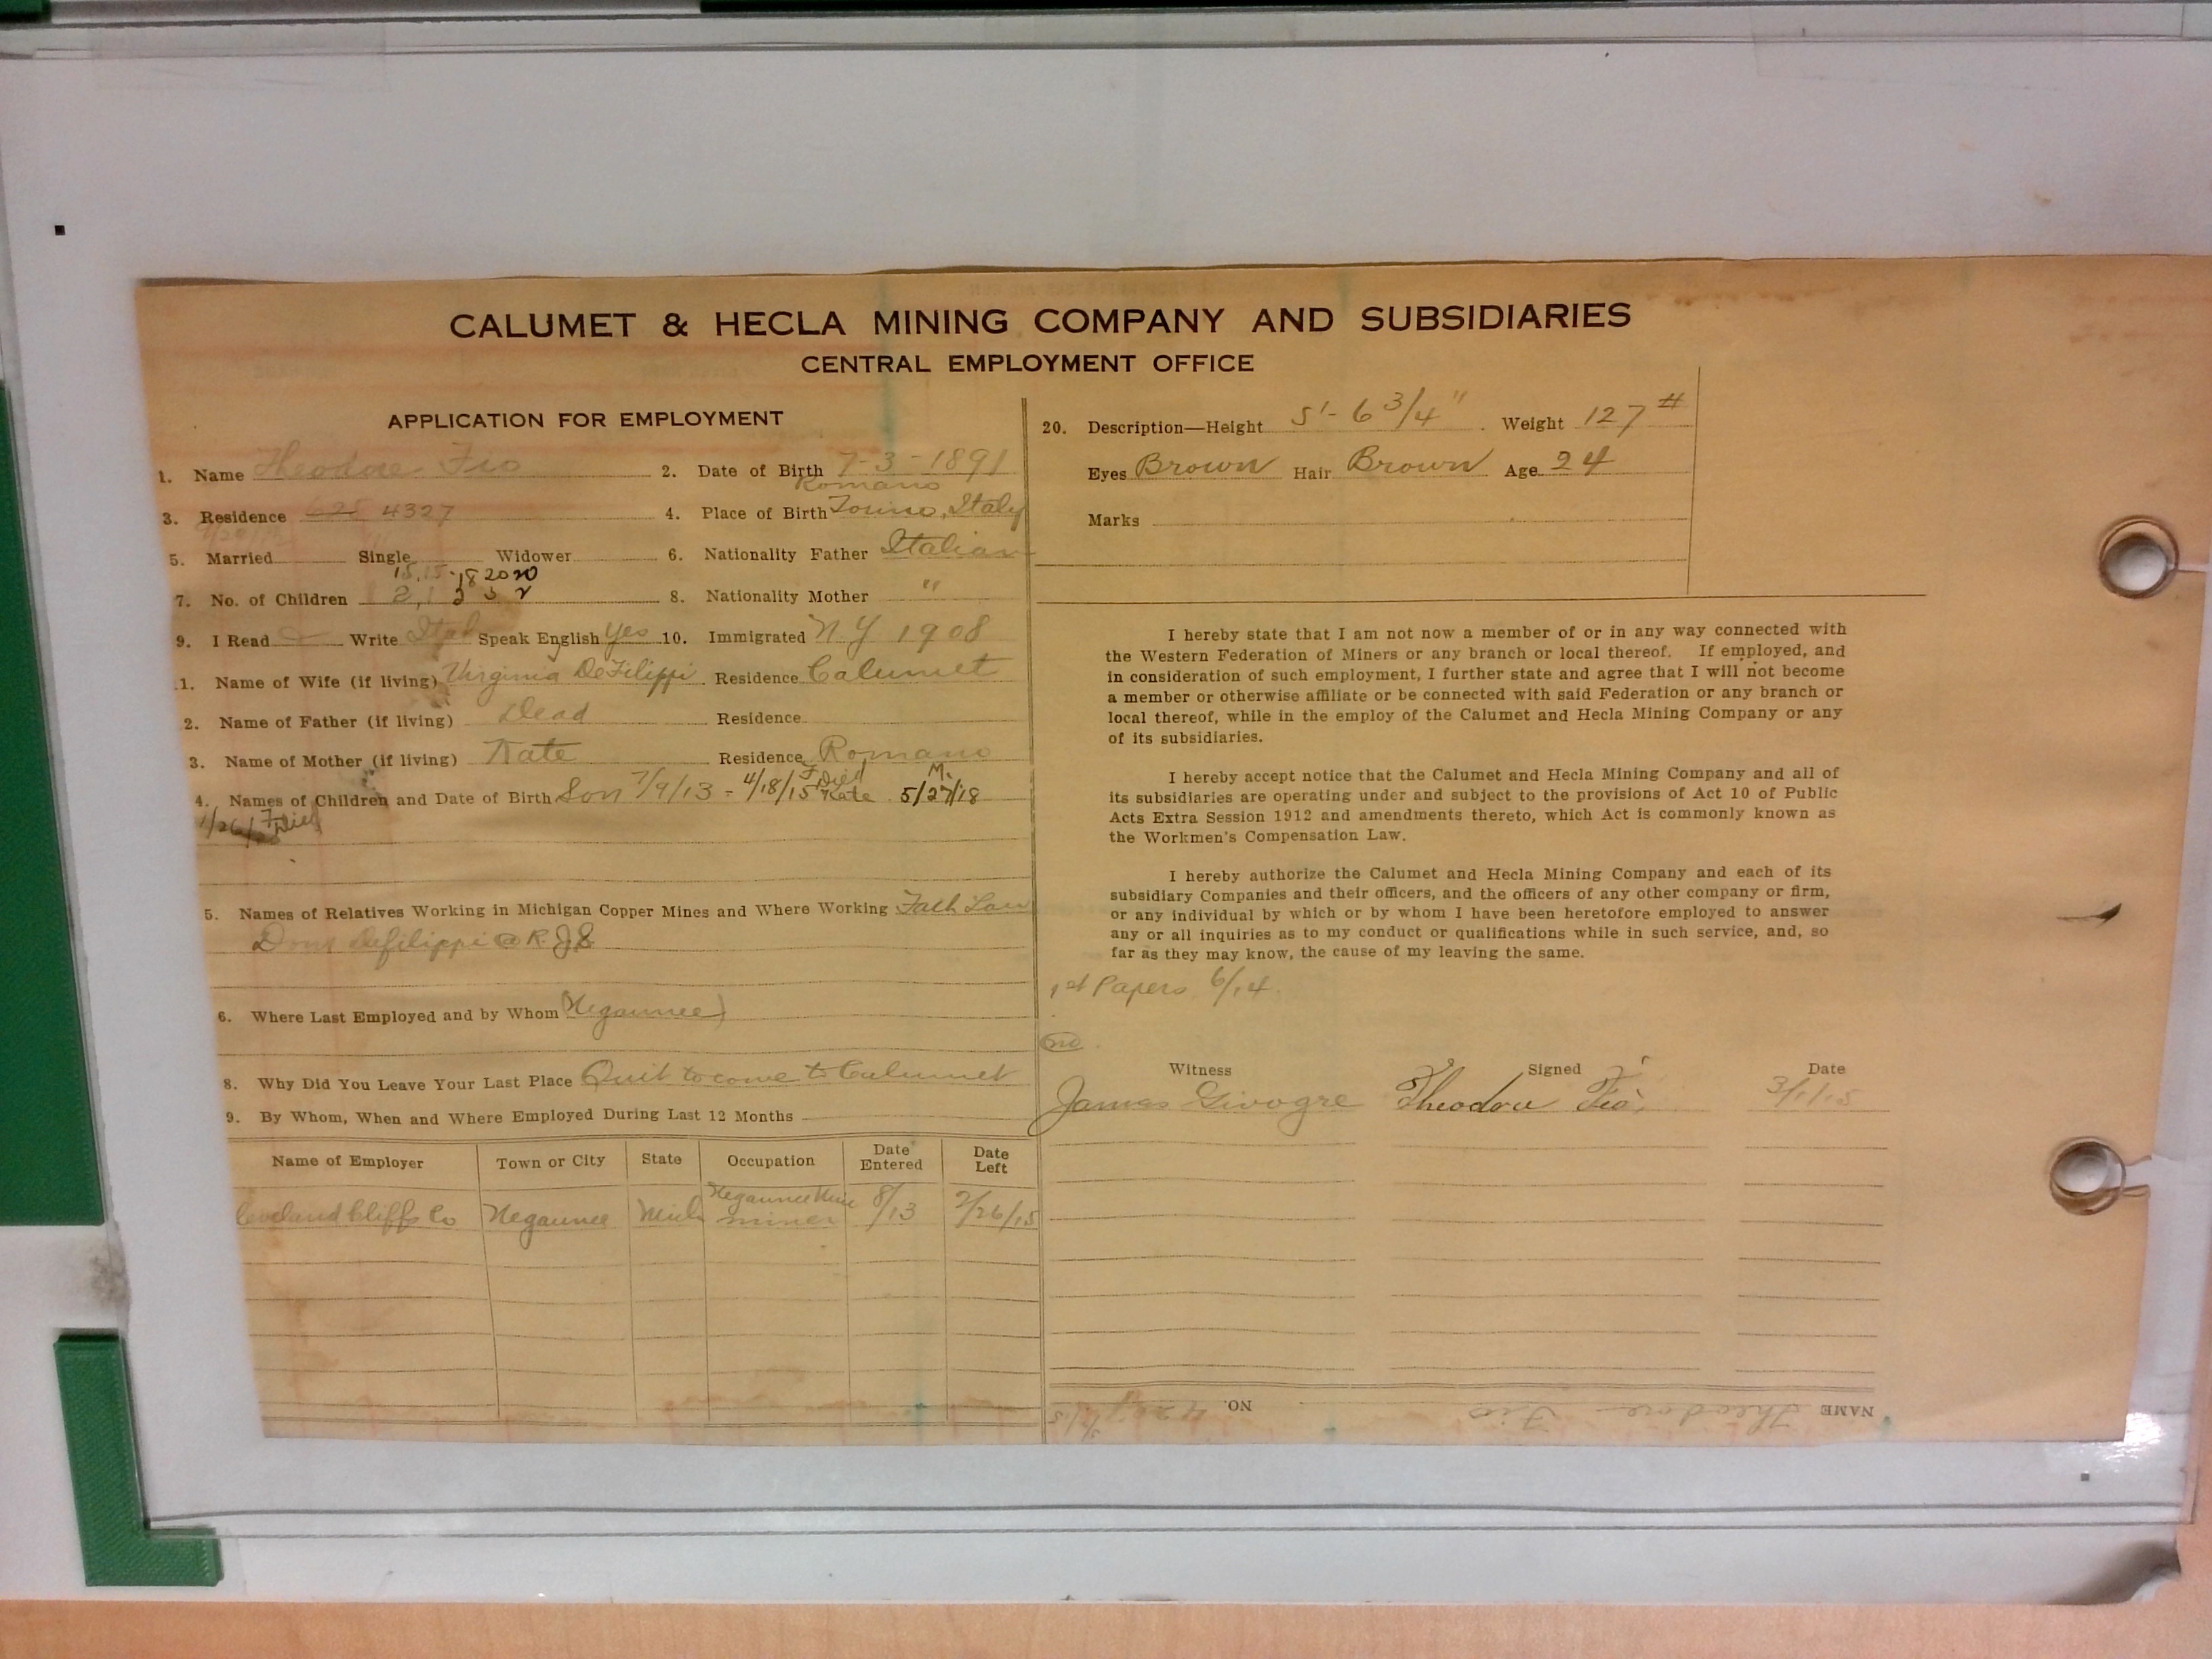 CALUMET & HECLA MINING COMPANY AND SUBSIDIARIES
CENTRAL EMPLOYMENT OFFICE
APPLICATION FOR EMPLOYMENT
1. Name Theodore Fio 2. Date of Birth 7-3-1891
Romano
3. Residence 625 4327 4. Place of Birth Torino, Italy
5. Married Single Widower 6. Nationality Father Italian
15, 15 18 20 20
7. No. of Children 2, 1 2 3 2 8. Nationality Mother "
9. I Read Write Ital Speak English Yes 10. Immigrated N Y 1908
1. Name of Wife (if living) Virginia DeFilippi Residence Calumet
2. Name of Father (if living) Dead Residence
3. Name of Mother (if living) Kate Residence Romano
F Died M.
4. Names of Children and Date of Birth Son 7/9/13 - 4/18/15 Kate 5/27/18
1/26/20 F Died
5. Names of Relatives Working in Michigan Copper Mines and Where Working Fath Law
Dom Defilippi @ R. J. S.
6. Where Last Employed and by Whom (Negaunee)
8. Why Did You Leave Your Last Place Quit to come to Calumet
9. By Whom, When and Where Employed During Last 12 Months
Name of Employer Town or City State Occupation Date Entered Date Left
Cleveland Cliffs Co Negaunee Mich Negaunee Mine miner 8/13 2/26/15
20. Description—Height 5'- 6 3/4" Weight 127 #
Eyes Brown Hair Brown Age 24
Marks
I hereby state that I am not now a member of or in any way connected with
the Western Federation of Miners or any branch or local thereof. If employed, and
in consideration of such employment, I further state and agree that I will not become
a member or otherwise affiliate or be connected with said Federation or any branch or
local thereof, while in the employ of the Calumet and Hecla Mining Company or any
of its subsidiaries.
I hereby accept notice that the Calumet and Hecla Mining Company and all of
its subsidiaries are operating under and subject to the provisions of Act 10 of Public
Acts Extra Session 1912 and amendments thereto, which Act is commonly known as
the Workmen's Compensation Law.
I hereby authorize the Calumet and Hecla Mining Company and each of its
subsidiary Companies and their officers, and the officers of any other company or firm,
or any individual by which or by whom I have been heretofore employed to answer
any or all inquiries as to my conduct or qualifications while in such service, and, so
far as they may know, the cause of my leaving the same.
1st Papers 6/14
no
Witness Signed Date
James Givogre Theodore Fio 3/1/15
NAME Theodore Fio NO.